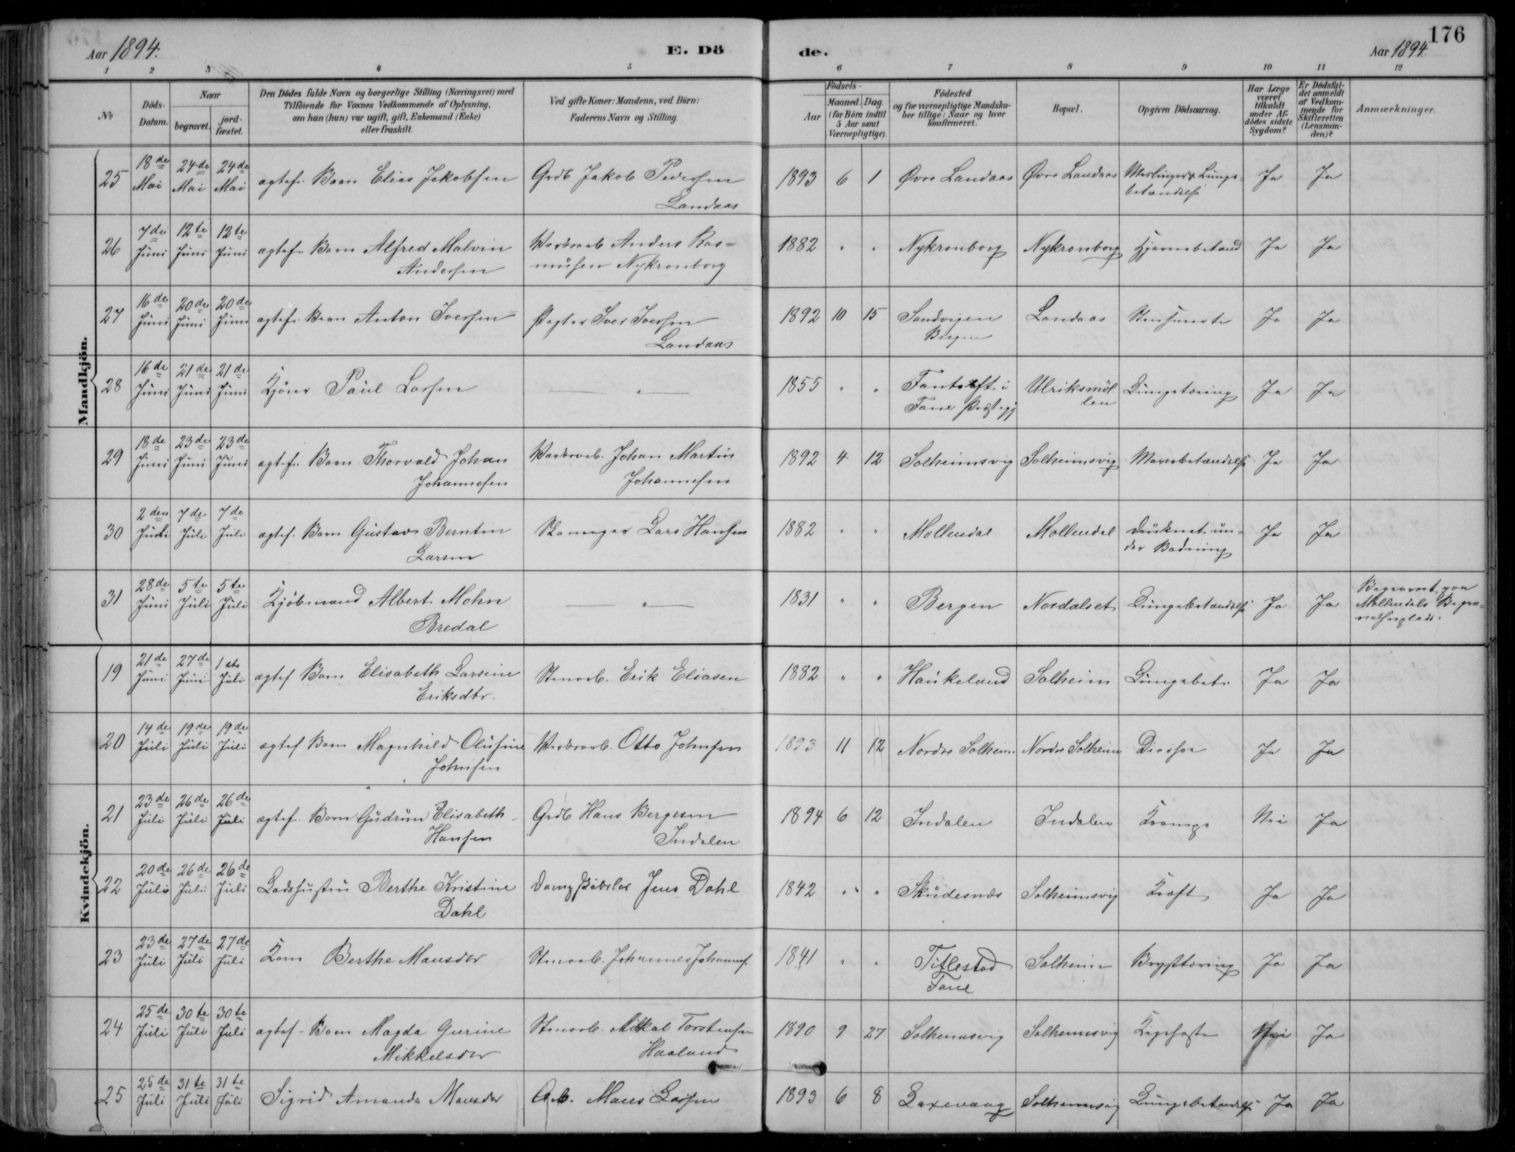 Aar 1894.
E. Dö
de.
Aar 1894
176
1 2 3 4 5 6 7 8 9 10 11 12
No
Döds-
Datum.
Naar
begravet.
jord-
fæstet.
Den Dödes fulde Navn og borgerlige Stilling (Næringsvei) med
Tilföiende for Voxnes Vedkommende af Oplysning,
om han (hun) var ugift, gift, Enkemand (Enke)
eller fraskilt.
Ved gifte Koner: Mandens, ved Börn:
Faderens Navn og Stilling.
Födsels-
Aar
Maaned.
Dag
(for Börn indtil
5 Aar samt
Værnepligtige).
Födested
og for værnepligtige Mandska-
ber tillige: Naar og hvor
konfirmeret.
Bopæl.
Opgiven Dödsaarsag.
Har Læge
været
tilkaldt
under Af-
dödes sidste
Sygdom?
Er Dödsfal-
det anmeldt
af Vedkom-
mende for
Skifteretten
(Lensman-
den)?
Anmærkninger.
Mandkjön.
25 18de Mai 24de Mai 24de Mai ægtef. Barn Elias Jakobsen Grdb Jakob Pedersen Landaas 1893 6 1 Øvre Landaas Øvre Landaas Meslinger & Lunge-
betændelse Ja Ja
26 7de Juni 12te Juni 12te Juni ægtef. Barn Alfred Malvin Andersen Værksarb Anders Ras-
musen Nykronborg 1882 " " Nykronborg Nykronborg Hjernebetænd Ja Ja
27 16de Juni 20de Juni 20de Juni ægtef. Barn Anton Iversen Iver Iversen Landaas 1892 10 15 Sandvigen Bergen Landaas Ja Ja
28 16de Juni 21de Juni 21de Juni Paul Larsen — " — 1855 " " Fantoft i
Fane Ulriksmöl
len Lungetæring Ja Ja
29 18de Juni 23de Juni 23de Juni ægtef. Barn Thorvald Johan Johannesen Værksarb. Johan Martin Johannesen 1892 4 12 Solheimsvig Solheimsvig Mavebetændelse Ja Ja
30 2den 7de Juli 7de Juli ægtef. Barn Gustav Berntin Larsen Lars Hansen 1882 " " Møllendal Møllendal Druknet un-
der Badning Ja Ja
31 28de Juni 5te Juli 5te Juli Kjöbmand Albert Mohn Bredal — " — 1831 " " Bergen Nordalset Lungebetændelse Ja Ja Begravet paa
Møllendals Begra-
velsesplads.
Kvindekjön.
19 21de Juni 27de Juni 1ste Juli ægtef Barn Elisabeth Larsine Eriksdtr. Stenarb. Erik Eliasen 1882 " " Haukeland Solheim Lungebet. Ja Ja
20 14de Juli 19de Juli 19de Juli ægtef Barn Magnhild Olufine Johnsen Værksarb. Otto Johnsen 1893 11 12 Nordre Solheim Nordre Solheim Ja Ja
21 23de Juli 26de Juli 26de Juli ægtef. Barn Gudrun Elisabeth Hansen Grdb Hans Bergesen Indalen 1894 6 12 Indalen Indalen Krampe Nei Ja
22 20de Juli 26de Juli 26de Juli Berthe Kristine Dahl Jens Dahl 1842 " " Skudesnæs Solheimsvig Kræft Ja Ja
23 23de Juli 27de Juli 27de Juli Kone Berthe Mansdtr Stenarb. Johannes Johannes. 1841 " " Titlestad
Fane Solheim Brysttæring Ja Ja
24 25de Juli 30te Juli 30te Juli ægtef. Barn Magda Gurine Mikkelsdtr Stenarb. Mikkal Torstensen Haaland 1890 9 27 Solheimsvig Solheimsvig Kighoste Nei Ja
25 25de Juli 31te Juli 31te Juli Sigrid Amanda Mansdtr Arb. Mans Larsen 1893 6 8 Laxevaag Solheimsvig Lungebetændelse Ja Ja